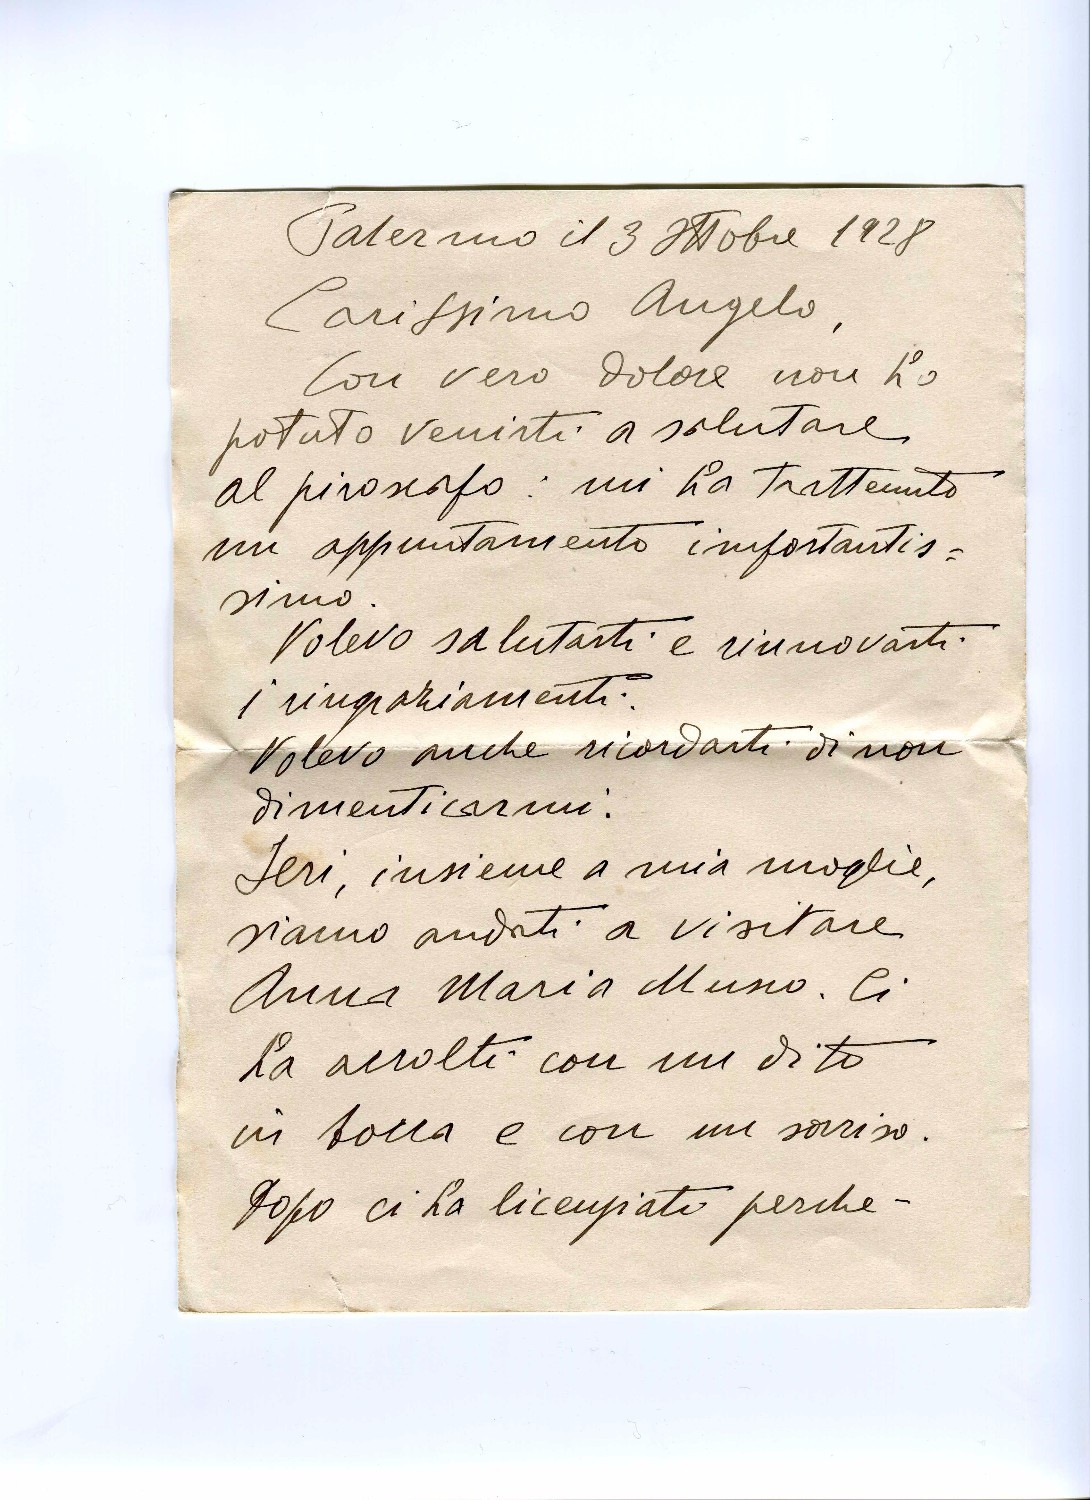 Palermo il 3 Ottobre 1928
Carissimo Angelo,
Con vero dolore non ho
potuto venirti a salutare
al piroscafo: mi ha trattenuto
un appuntamento importantis=
simo.
Volevo salutarti e rinnovarti
i ringraziamenti.
Volevo anche ricordarti di non
dimenticarmi.
Ieri, insieme a mia moglie,
siamo andati a visitare
Anna Maria Musso. Ci
ha accolti con un dito
in bocca e con un sorriso.
Dopo ci ha licenziati perche-